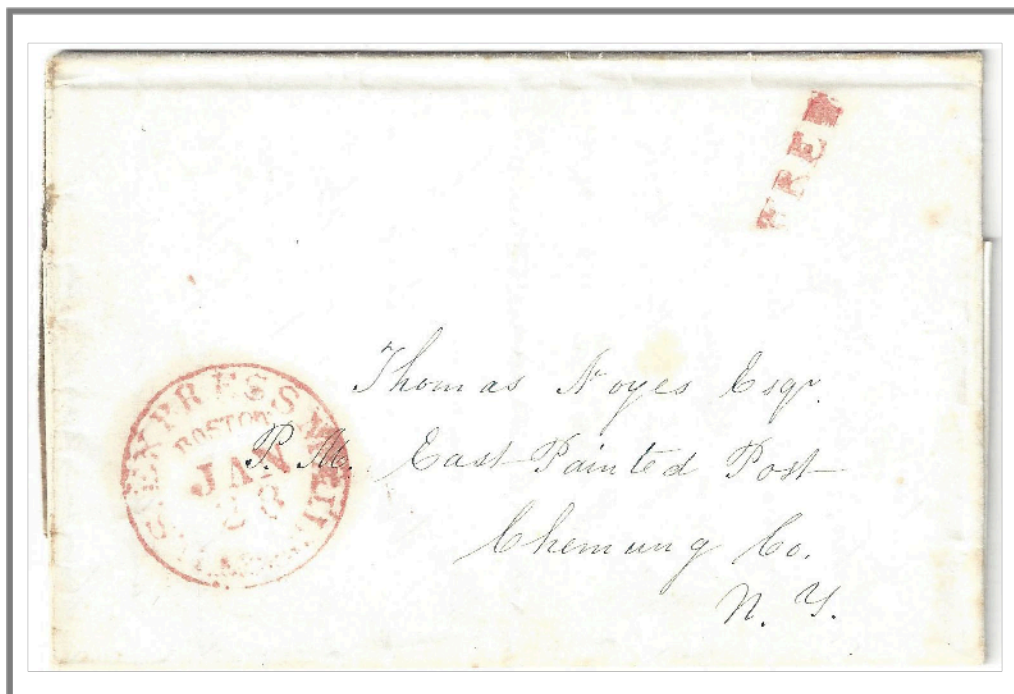 FREE
U.S. EXPRESS MAIL
BOSTON
JAN
28
Thomas Noyes Esqr.
P. M. East Painted Post
Chemung Co.
N. Y.